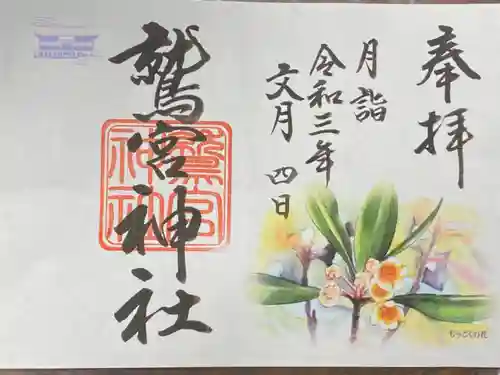 奉拝
月詣
令和三年
文月 四日
鷲宮神社
鷲宮
神社
もっこくの花